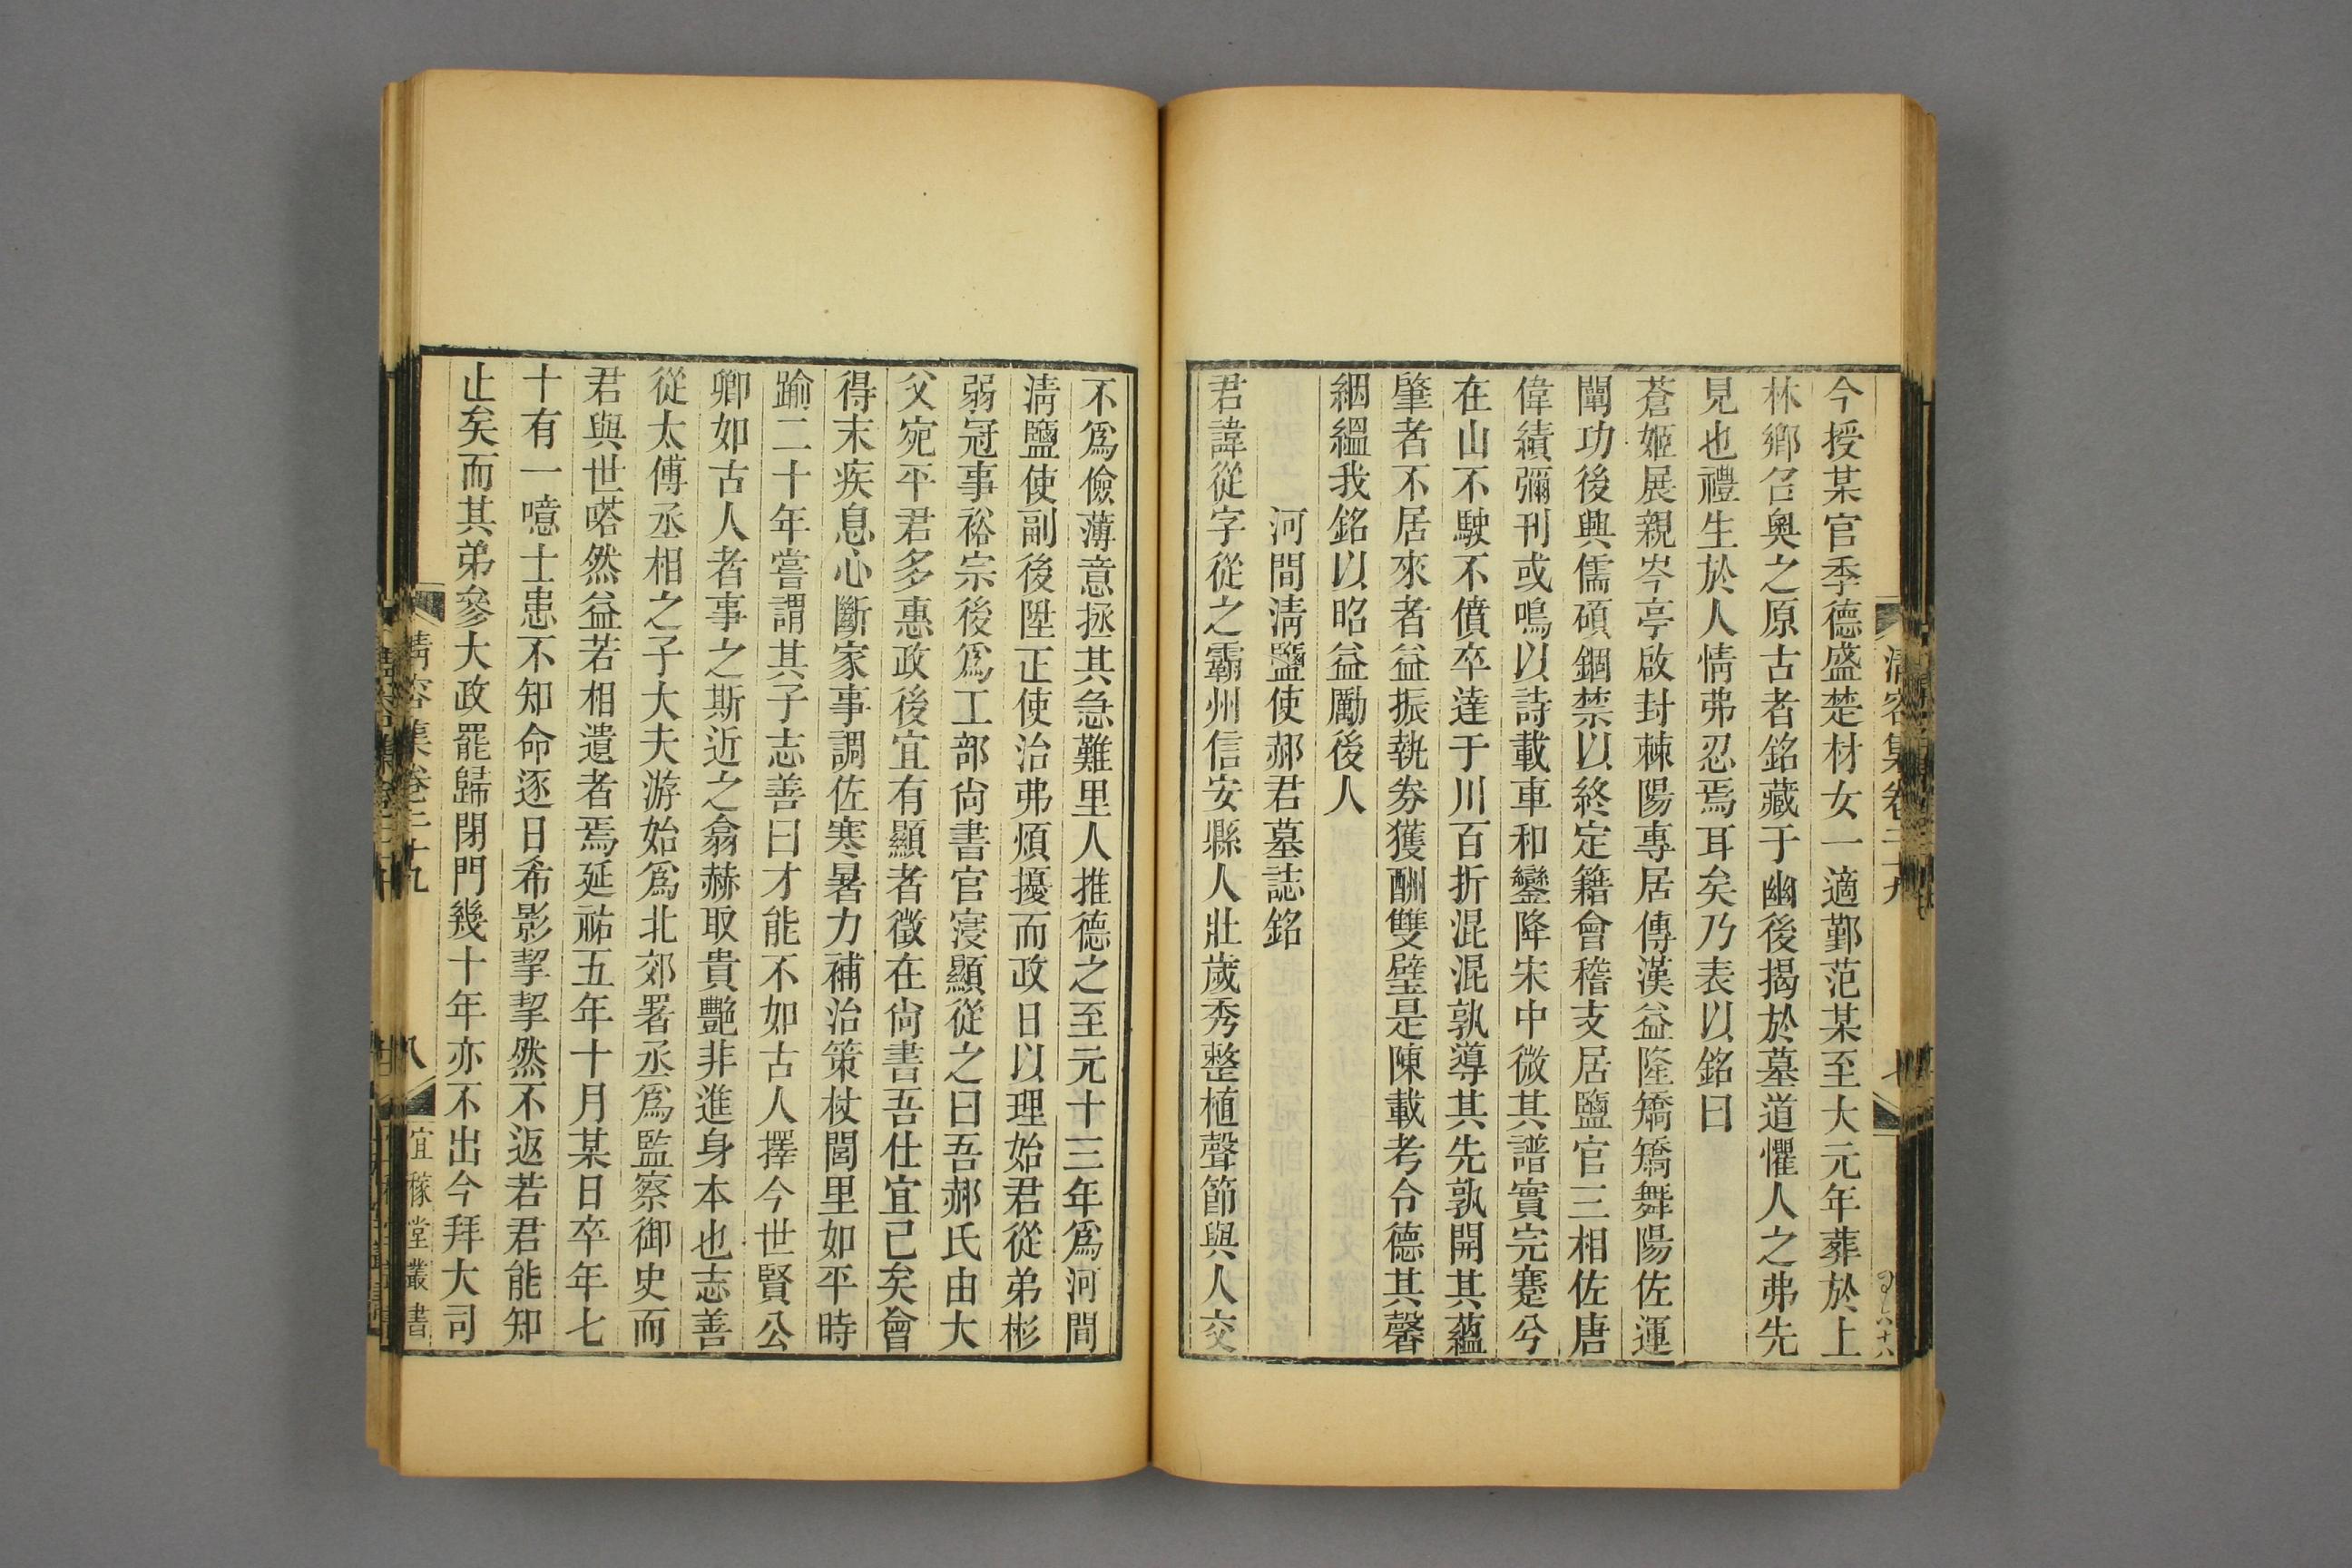 今授某官季德盛楚材女一適鄞范某至大元年葬於上
林鄉召奧之原古者銘藏于幽後揭於墓道懼人之弗先
見也禮生於人情弗忍焉耳矣乃表以銘曰
蒼姬展親岑亭啟封棘陽專居傳漢益隆矯矯舞陽佐運
闡功後興儒碩錮禁以終定籍會稽支居鹽官三相佐唐
偉績彌刊或鳴以詩載車和鑾降宋中微其譜實完蹇兮
在山不駛不僨卒達于川百折混混孰導其先孰開其蘊
肇者不居來者益振執券獲酬雙璧是陳載考令德其馨
絪縕我銘以昭益勵後人
河間淸鹽使郝君墓誌銘
君諱從字從之霸州信安縣人壯歲秀整植聲節與人交
不爲儉薄意拯其急難里人推德之至元十三年爲河間
淸鹽使副後陞正使治弗煩擾而政日以理始君從弟彬
弱冠事裕宗後爲工部尙書官寖顯從之曰吾郝氏由大
父宛平君多惠政後宜有顯者徵在尙書吾仕宜已矣會
得末疾息心斷家事調佐寒暑力補治策杖閭里如平時
踰二十年嘗謂其子志善曰才能不如古人擇今世賢公
卿如古人者事之斯近之翕赫取貴艷非進身本也志善
從太傅丞相之子大夫游始爲北郊署丞爲監察御史而
君與世嗒然益若相遺者焉延祐五年十月某日卒年七
十有一噫士患不知命逐日希影挈挈然不返若君能知
止矣而其弟參大政罷歸閉門幾十年亦不出今拜大司
淸容集卷二十九
八
宜稼堂叢書